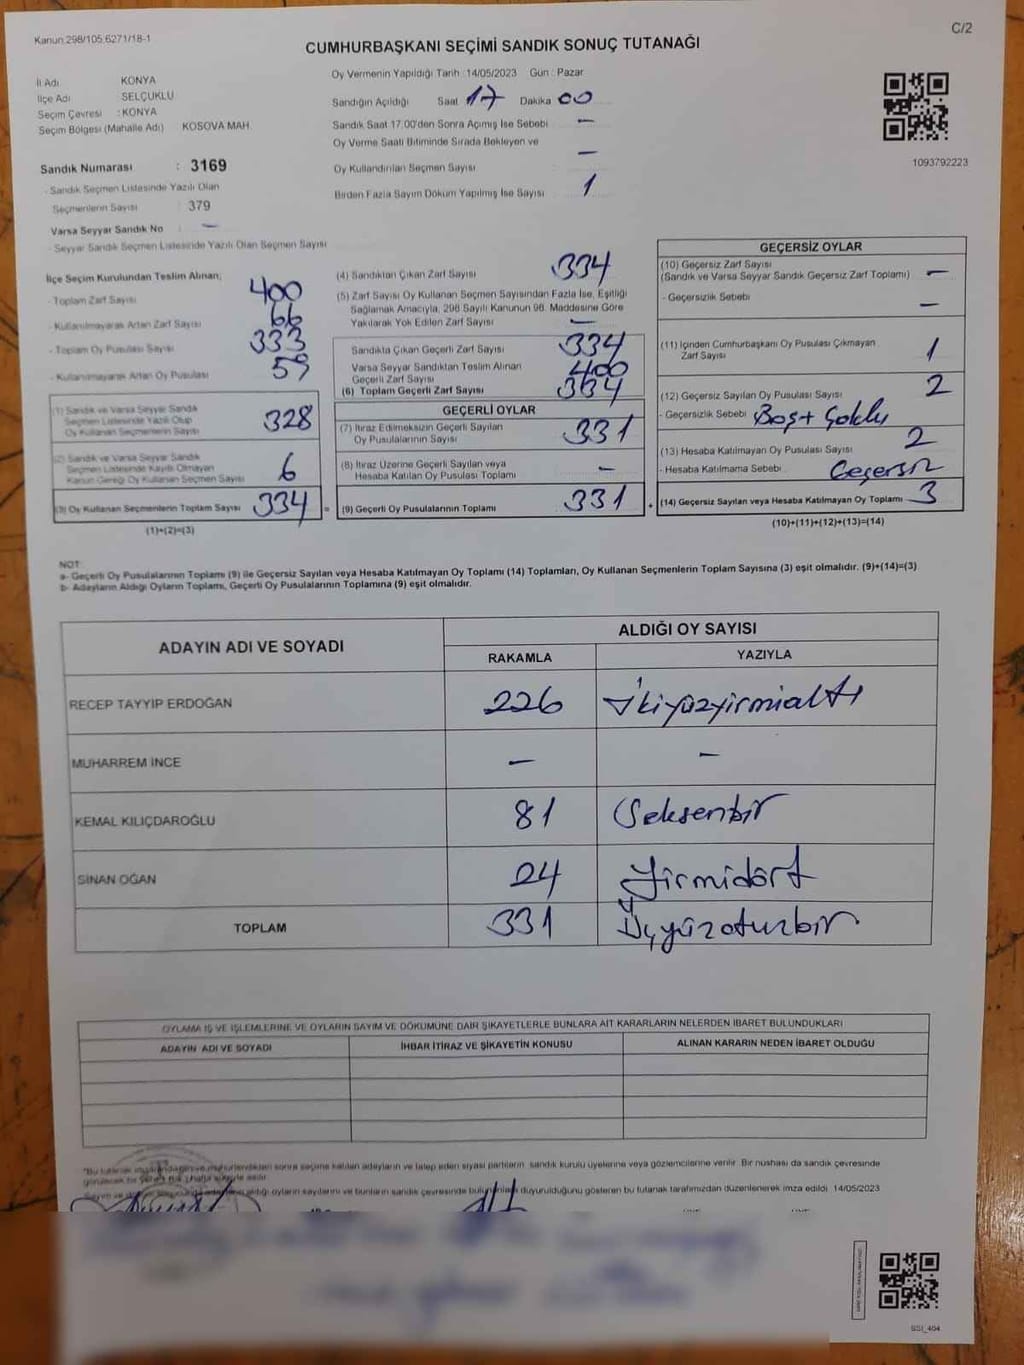 Kanun 298/105 6271/18-1
C/2
CUMHURBAŞKANI SEÇİMİ SANDIK SONUÇ TUTANAĞI
İl Adı KONYA
İlçe Adı SELÇUKLU
Seçim Çevresi : KONYA
Seçim Bölgesi (Mahalle Adı) KOSOVA MAH.
Sandık Numarası : 3169
- Sandık Seçmen Listesinde Yazılı Olan
Seçmenlerin Sayısı : 379
Varsa Seyyar Sandık No —
- Seyyar Sandık Seçmen Listesinde Yazılı Olan Seçmen Sayısı
Oy Vermenin Yapıldığı Tarih : 14/05/2023 Gün : Pazar
Sandığın Açıldığı Saat 17 Dakika 00
Sandık Saat 17.00'den Sonra Açılmış İse Sebebi —
Oy Verme Saati Bitiminde Sırada Bekleyen ve
Oy Kullandırılan Seçmen Sayısı —
Birden Fazla Sayım Döküm Yapılmış İse Sayısı 1
1093792223
İlçe Seçim Kurulundan Teslim Alınan;
- Toplam Zarf Sayısı 400
- Kullanılmayarak Artan Zarf Sayısı 66
- Toplam Oy Pusulası Sayısı 333
- Kullanılmayarak Artan Oy Pusulası 59
(1) Sandık ve Varsa Seyyar Sandık
Seçmen Listesinde Yazılı Olup
Oy Kullanan Seçmenlerin Sayısı 328
(2) Sandık ve Varsa Seyyar Sandık
Seçmen Listesinde Kayıtlı Olmayan
Kanun Gereği Oy Kullanan Seçmen Sayısı 6
(3) Oy Kullanan Seçmenlerin Toplam Sayısı 334 =
(1)+(2)=(3)
(4) Sandıktan Çıkan Zarf Sayısı 334
(5) Zarf Sayısı Oy Kullanan Seçmen Sayısından Fazla İse, Eşitliği
Sağlamak Amacıyla, 298 Sayılı Kanunun 98. Maddesine Göre
Yakılarak Yok Edilen Zarf Sayısı —
Sandıkta Çıkan Geçerli Zarf Sayısı 334
Varsa Seyyar Sandıktan Teslim Alınan
Geçerli Zarf Sayısı 400
(6) Toplam Geçerli Zarf Sayısı 334
GEÇERLİ OYLAR
(7) İtiraz Edilmeksizin Geçerli Sayılan
Oy Pusulalarının Sayısı 331
(8) İtiraz Üzerine Geçerli Sayılan veya
Hesaba Katılan Oy Pusulası Toplamı —
(9) Geçerli Oy Pusulalarının Toplamı 331 +
GEÇERSİZ OYLAR
(10) Geçersiz Zarf Sayısı
(Sandık ve Varsa Seyyar Sandık Geçersiz Zarf Toplamı) —
- Geçersizlik Sebebi —
(11) İçinden Cumhurbaşkanı Oy Pusulası Çıkmayan
Zarf Sayısı 1
(12) Geçersiz Sayılan Oy Pusulası Sayısı 2
- Geçersizlik Sebebi Boş+ Çoklu
(13) Hesaba Katılmayan Oy Pusulası Sayısı 2
- Hesaba Katılmama Sebebi Geçersiz
(14) Geçersiz Sayılan veya Hesaba Katılmayan Oy Toplamı 3
(10)+(11)+(12)+(13)=(14)
NOT:
a- Geçerli Oy Pusulalarının Toplamı (9) ile Geçersiz Sayılan veya Hesaba Katılmayan Oy Toplamı (14) Toplamları, Oy Kullanan Seçmenlerin Toplam Sayısına (3) eşit olmalıdır. (9)+(14)=(3)
b- Adayların Aldığı Oyların Toplamı, Geçerli Oy Pusulalarının Toplamına (9) eşit olmalıdır.
ADAYIN ADI VE SOYADI ALDIĞI OY SAYISI
RAKAMLA YAZIYLA
RECEP TAYYIP ERDOĞAN 226 İkiyüzyirmialtı
MUHARREM İNCE — —
KEMAL KILIÇDAROĞLU 81 Seksenbir
SİNAN OĞAN 24 Yirmidört
TOPLAM 331 Üçyüzotuzbir
OYLAMA İŞ VE İŞLEMLERİNE VE OYLARIN SAYIM VE DÖKÜMÜNE DAİR ŞİKAYETLERLE BUNLARA AİT KARARLARIN NELERDEN İBARET BULUNDUKLARI
ADAYIN ADI VE SOYADI İHBAR İTİRAZ VE ŞİKAYETİN KONUSU ALINAN KARARIN NEDEN İBARET OLDUĞU
sonra seçime katılan adayların ve talep eden siyasi partilerin sandık kurulu üyelerine veya gözlemcilerine verilir. Bir nüshası da sandık çevresinde
aldığı oyların sayılarını ve bunların sandık çevresinde duyurulduğunu gösteren bu tutanak tarafımızdan düzenlenerek imza edildi. 14/05/2023
SSI_404